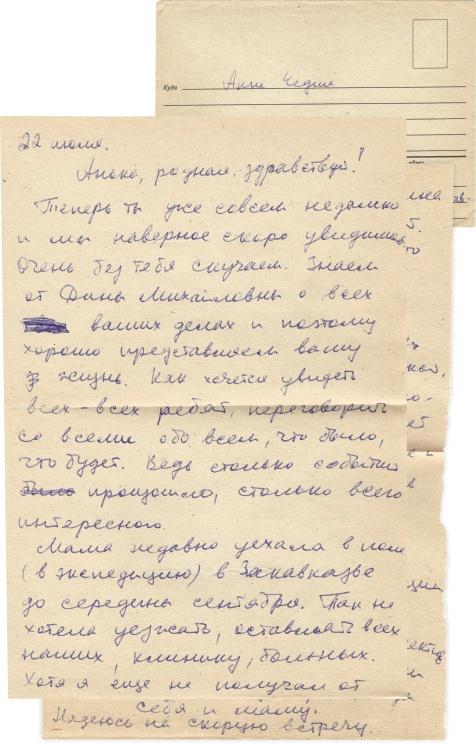 Куда Анне Чедия
22 июля.
Анока, родная, здравствуй!
Теперь ты уже совсем недалеко
и мы наверное скоро увидимся.
Очень без тебя скучаем. Знаем
от Дины Михайловны о всех
ваших делах и поэтому
хорошо представляем вашу
жизнь. Как хочется увидеть
всех-всех ребят, переговорить
со всеми обо всем, что было,
что будет. Ведь столько событий
произошло, столько всего
интересного.
Мама недавно уехала в поле
(в экспедицию) в Закавказье
до середины сентября. Так не
хотела уезжать, оставлять всех
наших, клинику, больных.
Хотя я еще не получал от
себя и маму.
Надеюсь на скорую встречу..